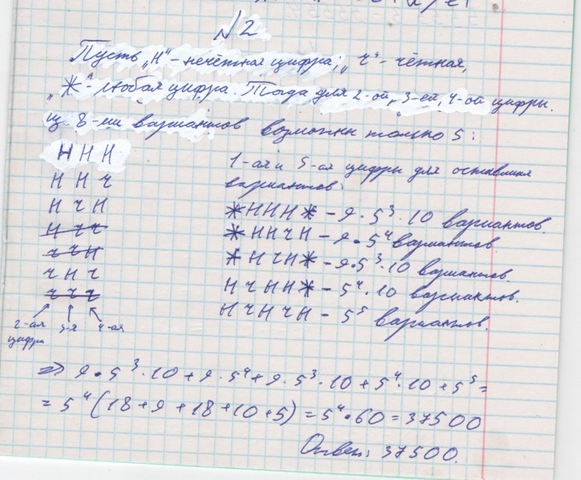 №2
Пусть "Н" - нечётная цифра; "Ч" - чётная,
"*" - любая цифра. Тогда для 2-ой, 3-ей, 4-ой цифры.
из 8-ми вариантов возможны только 5:
ННН
ННЧ
НЧН
НЧЧ
ЧЧН
ЧНЧ
ЧЧЧ
2-ая цифра 3-я 4-ая
1-ая и 5-ая цифры для оставшихся
вариантов:
*ННН* - 9·5³·10 вариантов.
*ННЧН - 9·5⁴ вариантов
*НЧН* - 9·5³·10 вариантов.
НЧНН* - 5⁴·10 вариантов.
НЧНЧН - 5⁵ вариантов.
=> 9·5³·10+9·5⁴+9·5³·10+5⁴·10+5⁵=
=5⁴(18+9+18+10+5)=5⁴·60=37500
Ответ: 37500.